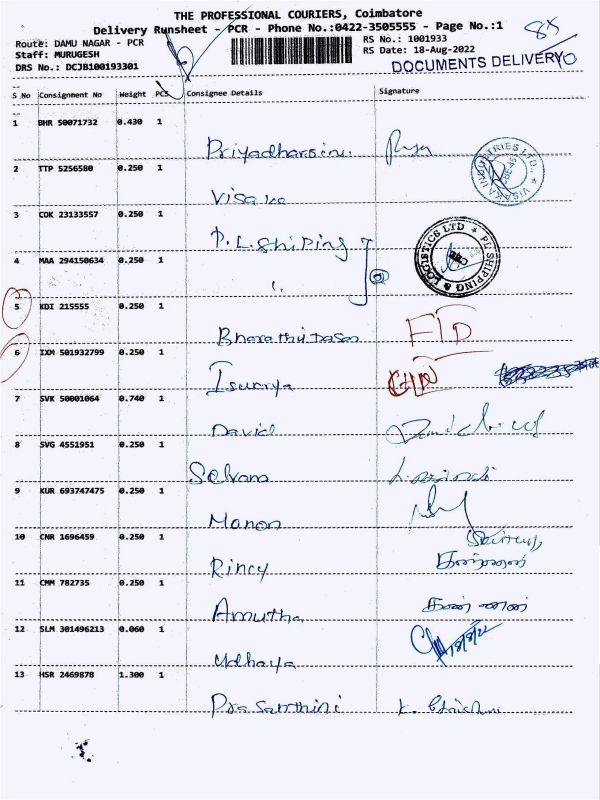 THE PROFESSIONAL COURIERS, Coimbatore
Delivery Runsheet - PCR - Phone No.:0422-3505555 - Page No.:1
Route: DAMU NAGAR - PCR
RS No.: 1001933
Staff: MURUGESH
RS Date: 18-Aug-2022
DRS No.: DCJB100193301
DOCUMENTS DELIVERY
S No Consignment No Weight PCS Consignee Details Signature
1 BHR 50071732 0.430 1
Priyadharsini
2 TTP 5256580 0.250 1
Visaka
VISAKA INDUSTRIES LTD.
3 COK 23133557 0.250 1
P.L. Shiping
PL SHIPPING & LOGISTICS LTD
4 MAA 294150634 0.250 1
5 KDI 215555 0.250 1
Bharathidasan FTD
6 IXM 501932799 0.250 1
Isurya
7 SVK 50001064 0.740 1
David
8 SVG 4551951 0.250 1
Selvam
9 KUR 693747475 0.250 1
Manon
10 CNR 1696459 0.250 1
Rincy
11 CMM 782735 0.250 1
Amutha
12 SLM 301496213 0.060 1
Udhaya 18/8/22
13 HSR 2469878 1.300 1
Prasanthini
MURUGESH